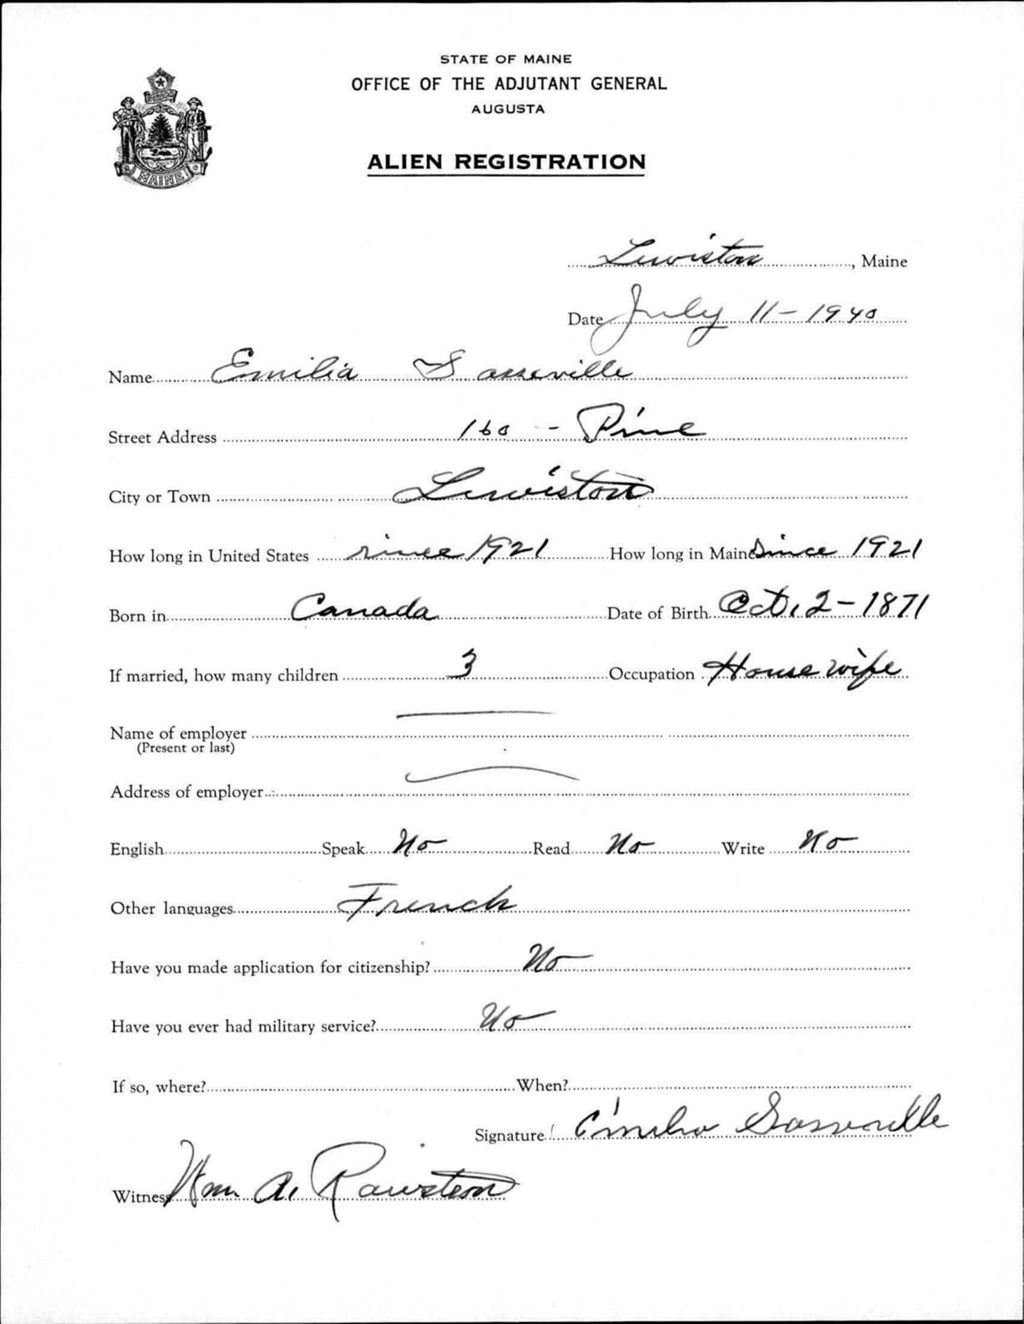 STATE OF MAINE
OFFICE OF THE ADJUTANT GENERAL
AUGUSTA
ALIEN REGISTRATION
MAINE
Lewiston, Maine
Date July 11-1940
Name Emilia Sasseville
Street Address 160 - Pine
City or Town Lewiston
How long in United States since 1921 How long in Maine Since 1921
Born in Canada Date of Birth Oct. 2-1871
If married, how many children 3 Occupation House wife
Name of employer
(Present or last)
Address of employer
English Speak No Read No Write No
Other languages French
Have you made application for citizenship? No
Have you ever had military service? No
If so, where? When?
Signature Emilia Sasseville
Witness Wm. A. Rawstron